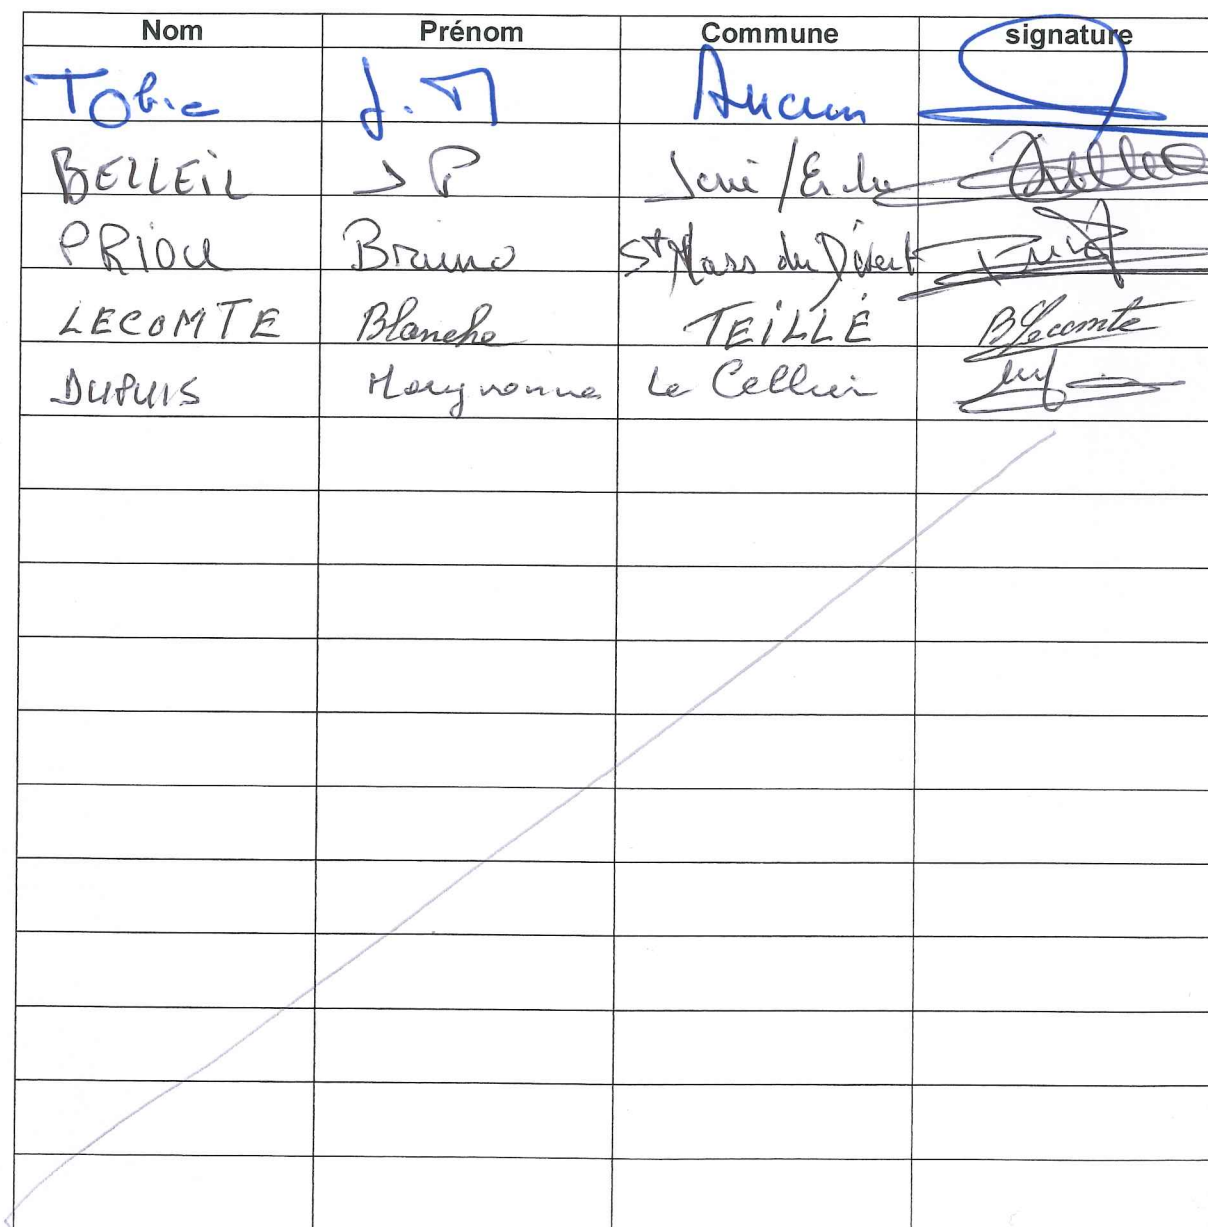 Nom Prénom Commune signature
Tobie J.M
BELLEIL J P
PRIOU Bruno St Mars du Désert
LECOMTE Blanche TEILLÉ BLecomte
DUPUIS Maryvonne Le Cellier